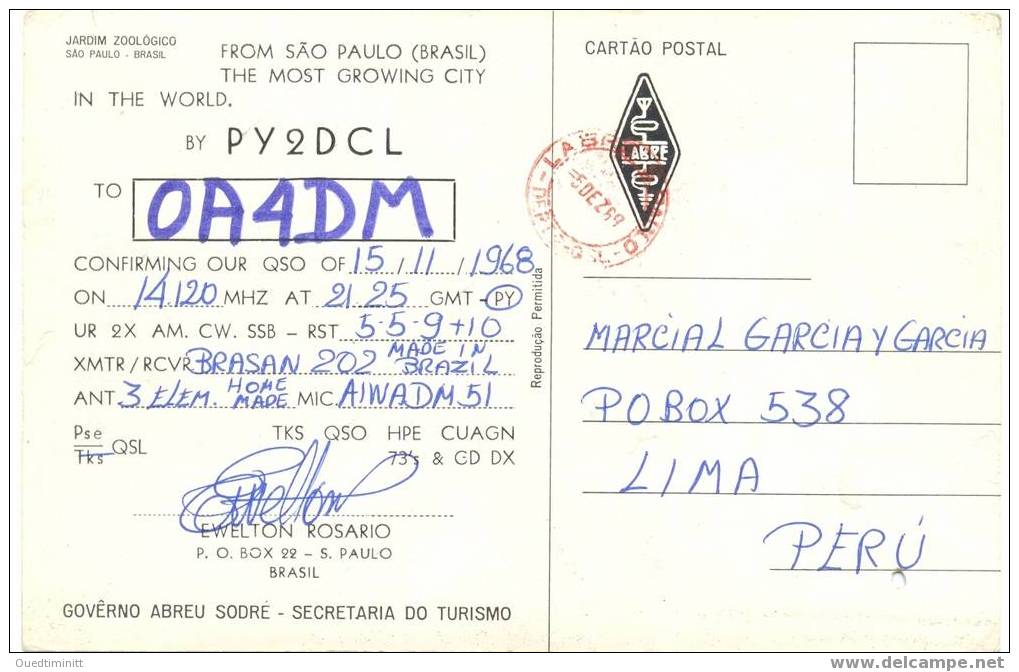 JARDIM ZOOLÓGICO
SÃO PAULO - BRASIL
FROM SÃO PAULO (BRASIL)
THE MOST GROWING CITY
IN THE WORLD.
BY PY2DCL
TO OA4DM
CONFIRMING OUR QSO OF 15/11/1968
ON 14120 MHZ AT 21.25 GMT - PY
UR 2X AM. CW. SSB - RST 5-5-9+10
XMTR/RCVR BRASAN 202 MADE IN BRAZIL
ANT. 3 ELEM. HOME MADE MIC. AIWA DM51
Pse
Tks QSL
TKS QSO HPE CUAGN
73's & GD DX
Ewelton
EWELTON ROSARIO
P. O. BOX 22 - S. PAULO
BRASIL
GOVÊRNO ABREU SODRÉ - SECRETARIA DO TURISMO
Reprodução Permitida
CARTÃO POSTAL
LABRE
MARCIAL GARCIA Y GARCIA
PO BOX 538
LIMA
PERÚ
Ouedtiminitt
www.delcampe.net